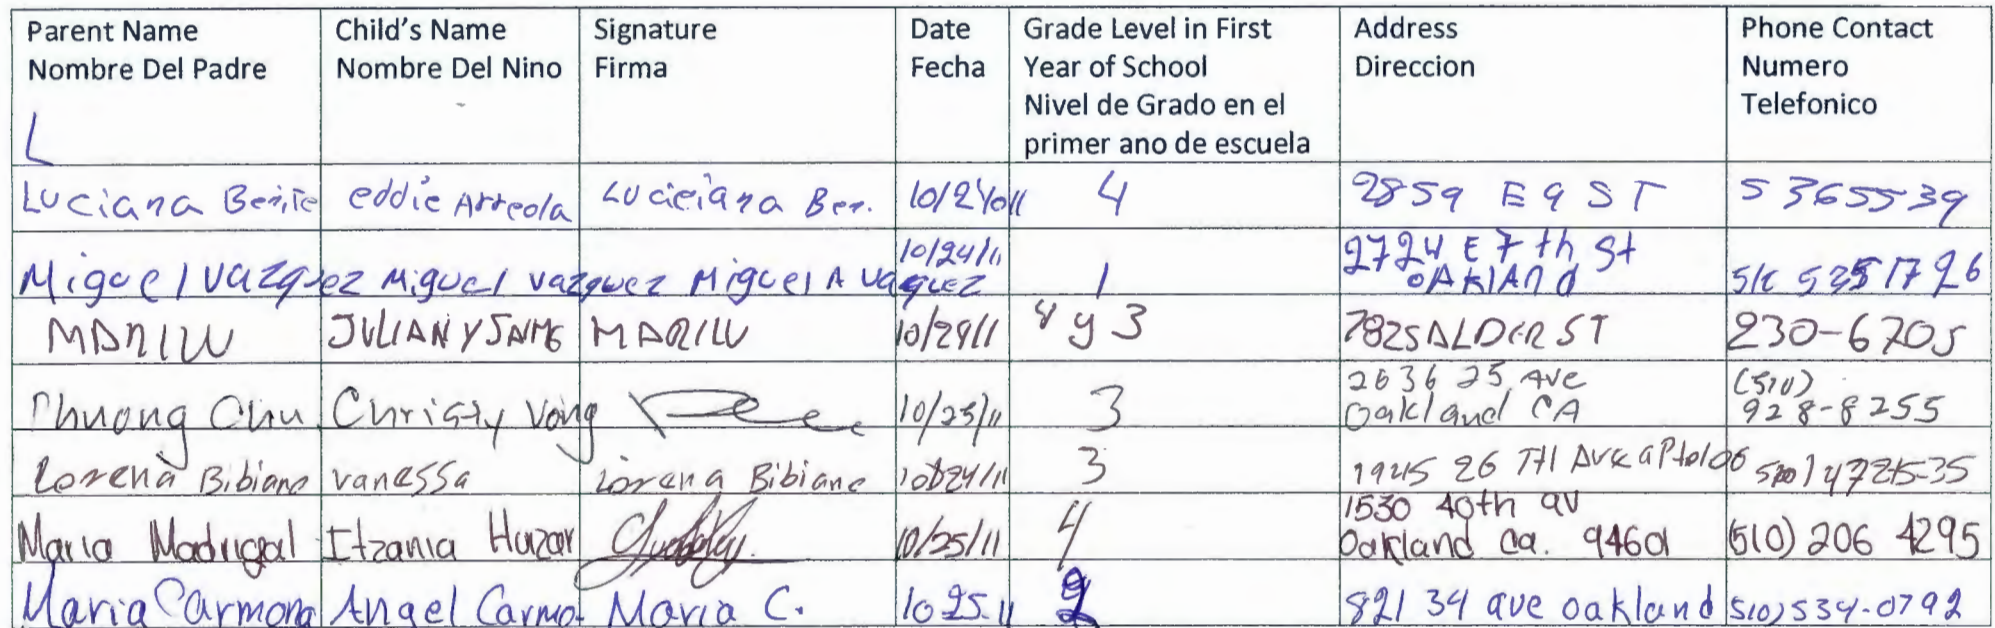 Parent Name
Nombre Del Padre
Child's Name
Nombre Del Nino
Signature
Firma
Date
Fecha
Grade Level in First
Year of School
Nivel de Grado en el
primer ano de escuela
Address
Direccion
Phone Contact
Numero
Telefonico
L
Luciana Benite eddie Arreola Luciciana Ben. 10/24011 4 2859 E 9 ST 5365539
Miguel Vazquez Miguel Vazquez Miguel A Vazquez 10/24/11 1 2724 E 7 th St
OAKLANd 510 5351726
MARILU JULIAN Y JAIME MARILU 10/24/11 4 y 3 7825 ALDER ST 230-6705
Phuong Chu Christy Vong 10/25/11 3 2636 25 Ave
Oakland CA
(510)
928-8255
Lorena Bibiano vanessa Lorena Bibiano 10/24/11 3 1945 26 TH Ave apto106 510) 4721535
Maria Madrigal Itzania Huizar 10/25/11 4 1530 40th av
Oakland Ca. 94601 (510) 206 4295
Maria Carmona Angel Carmo. Maria C. 10 25.11 2 821 34 ave oakland 510) 534-0792